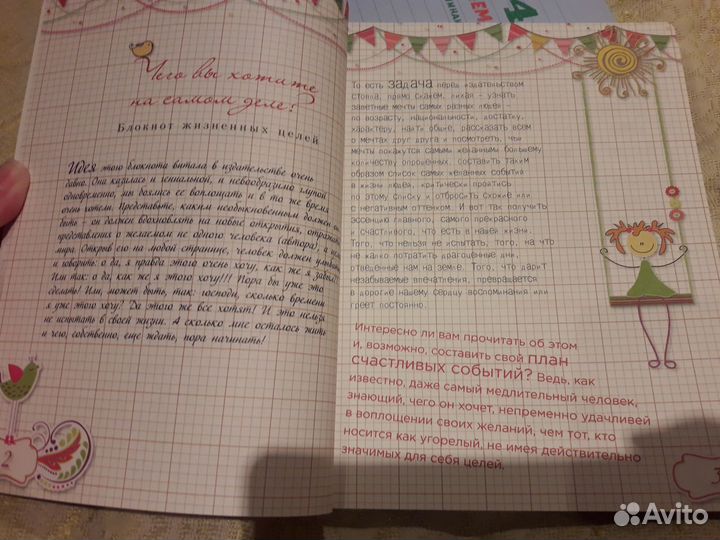 Чего вы хотите
на самом деле?
Блокнот жизненных целей
Идея этого блокнота витала в издательстве очень
давно. Она казалась и гениальной, и невообразимо глупой
одновременно, мы боялись ее воплощать и в то же время
очень хотели. Представьте, каким необыкновенным должен он
быть – он должен вдохновлять на новые открытия, отражать
представления о желаемом не одного человека (автора), а
мира. Открыв его на любой странице, человек должен
и говорить: о да, я правда этого очень хочу, как же я
Или так: о да, как же я этого хочу!!! Пора бы уже это
сделать! Или, может быть, так: господи, сколько времени
я уже этого хочу? Да этого же все хотят! И это нельзя
не испытать в своей жизни. А сколько мне осталось жить
и чего, собственно, еще ждать, пора начинать!
2
То есть задача перед издательством
стояла, прямо скажем, лихая – узнать
заветные мечты самых разных людей
по возрасту, национальности, достатку,
характеру, найти общие, рассказать всем
о мечтах друг друга и посмотреть, чьи
мечты покажутся самыми желанными большему
количеству опрошенных, составить таким
образом список самых желанных событий
в жизни людей, критически пройтись
по этому списку и отбросить схожие или
с негативным оттенком. И вот так получить
эссенцию главного, самого прекрасного
и счастливого, что есть в нашей жизни.
Того, что нельзя не испытать, того, на что
не жалко потратить драгоценные дни,
отведенные нам на земле. Того, что дарит
незабываемые впечатления, превращается
в дорогие нашему сердцу воспоминания или
греет постоянно.
Интересно ли вам прочитать об этом
и, возможно, составить свой план
счастливых событий? Ведь, как
известно, даже самый медлительный человек,
знающий, чего он хочет, непременно удачливей
в воплощении своих желаний, чем тот, кто
носится как угорелый, не имея действительно
значимых для себя целей.
3
4
Avito